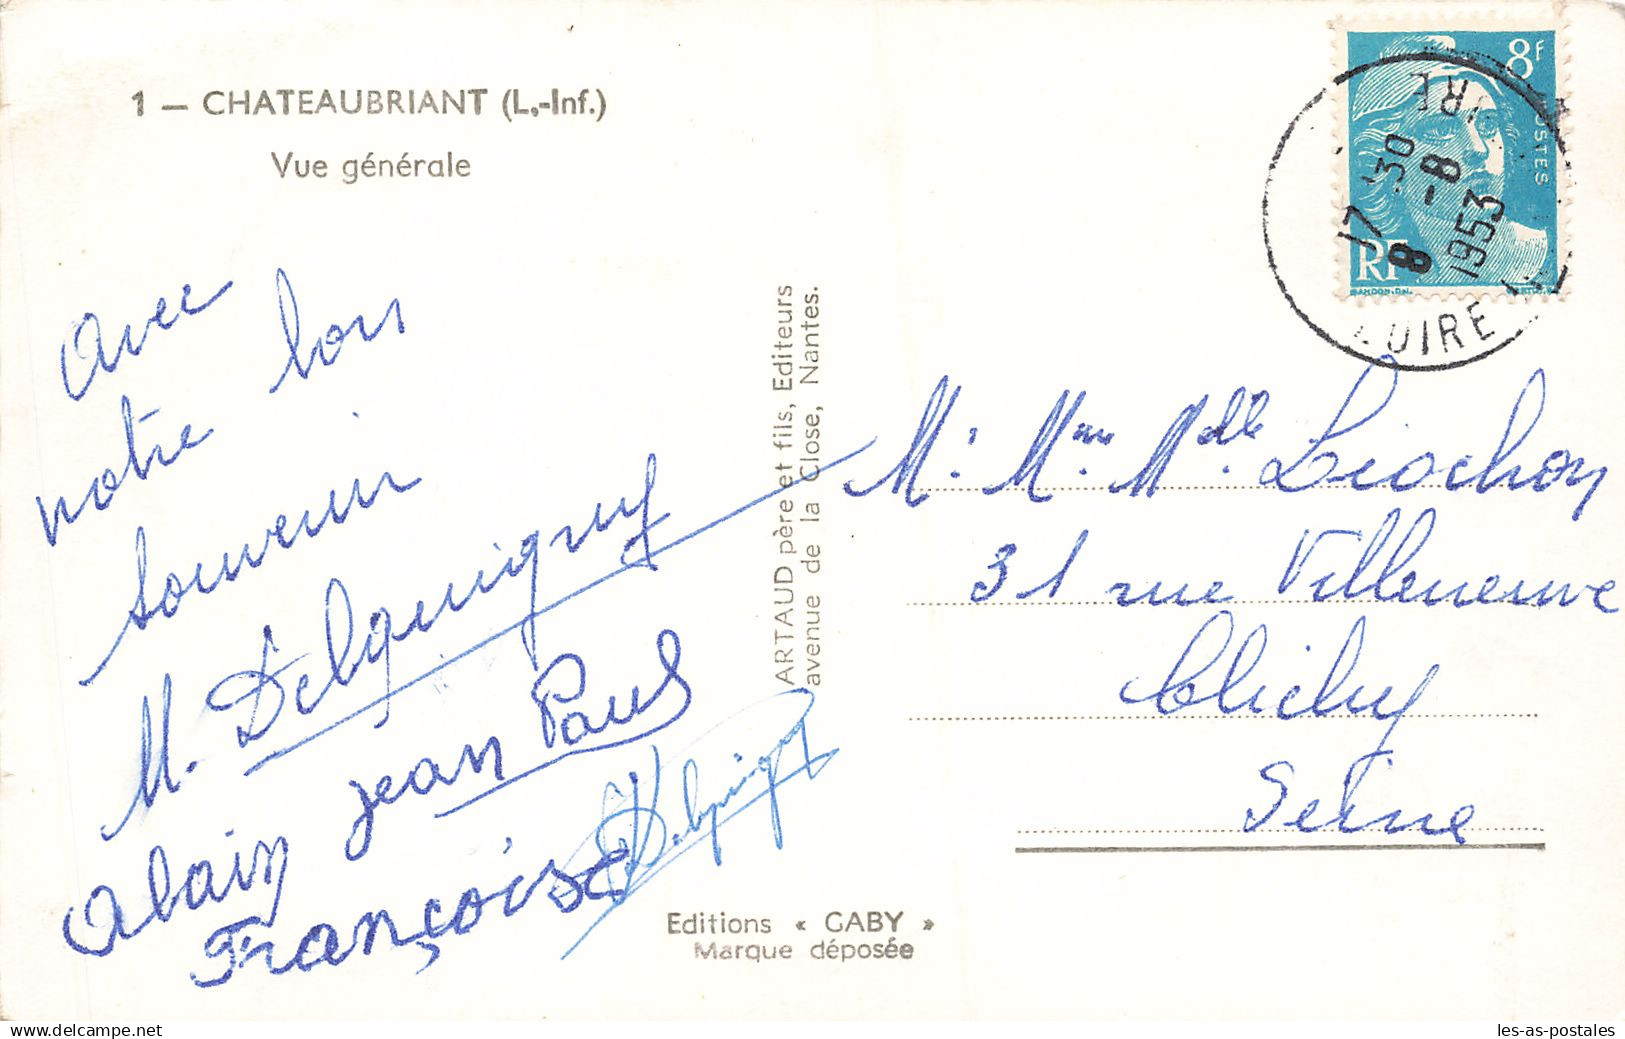 1 — CHATEAUBRIANT (L.-Inf.)
Vue générale
Avec
notre bon
souvenir
M. Delquigny
Jean Paul
Alain
Françoise
ARTAUD père et fils, Editeurs
avenue de la Close, Nantes.
Editions « GABY »
Marque déposée
8F
POSTES
RF
GANDON. DEL.
17 30
8 - 8
1953
LOIRE
M. Mme Melle Liochon
31 rue Villeneuve
Clichy
Seine
les-as-postales